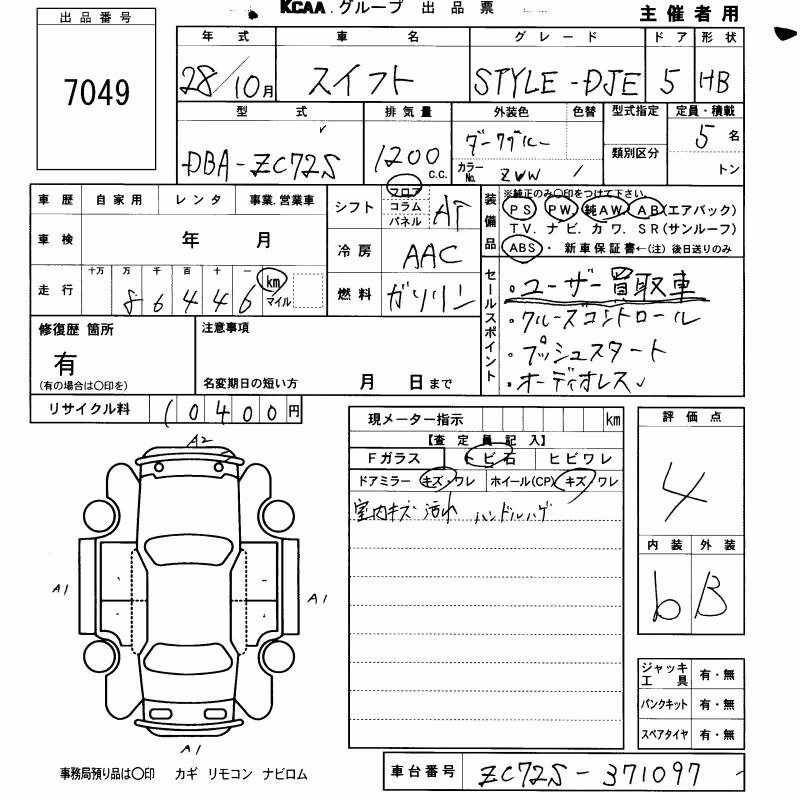 KCAA.グループ 出品票
主催者用
出品番号
7049
年式 車名 グレード ドア 形状
28/10月 スイフト STYLE-DJE 5 HB
型式 排気量 外装色 色替 型式指定 定員・積載
DBA-ZC72S 1200 C.C. ダークブルー 5名
カラーNo. ZVW 類別区分 トン
車歴 自家用 レンタ 事業.営業車
シフト フロア コラム パネル AT
装備品
※純正のみ○印をつけて下さい。
PS PW 純AW AB(エアバック)
TV. ナビ. カワ. SR(サンルーフ)
ABS・ 新車保証書←(注)後日送りのみ
車検 年 月
冷房 AAC
走行 十万 万 千 百 十 一
86446 km マイル
燃料 ガソリン
セールスポイント
・ユーザー買取車
・クルーズコントロール
・プッシュスタート
・オーディオレス
修復歴 箇所
有
(有の場合は○印を)
注意事項
名変期日の短い方 月 日まで
リサイクル料 10400円
現メーター指示 km
【査定員記入】
Fガラス トビ石 ヒビワレ
ドアミラー キズ・ワレ ホイール(CP) キズ・ワレ
室内キズ 汚れ ハンドルハゲ
評価点
4
内装 外装
b B
A2
A1
A1
A1
ジャッキ工具 有・無
パンクキット 有・無
スペアタイヤ 有・無
事務局預り品は○印 カギ リモコン ナビロム
車台番号 ZC72S-371097